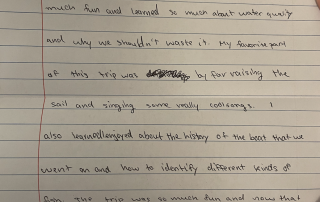 much fun and learned so much about water quality
and why we shouldn't waste it. My favorite part
of this trip was by far raising the
sail and singing some really cool songs. I
also learned/enjoyed about the history of the boat that we
went on and how to identify different kinds of
the trip was so much fun and now that